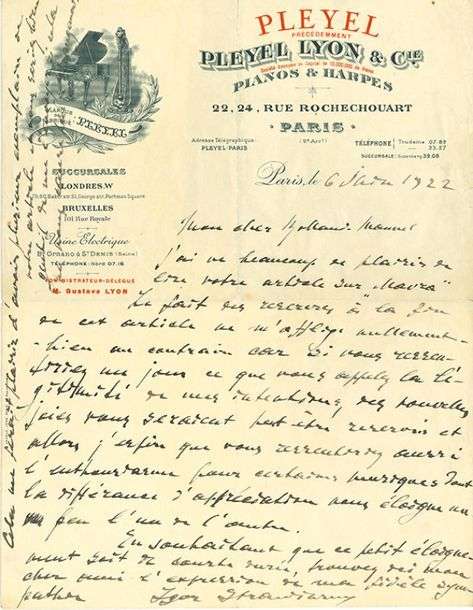 PLEYEL
PRÉCÉDEMMENT
PLEYEL LYON & Cie
Société Anonyme au Capital de 10.000.000 de francs
PIANOS & HARPES
22, 24, RUE ROCHECHOUART
PARIS
(9e Arrt)
Adresse Télégraphique:
PLEYEL-PARIS
TÉLÉPHONE
SUCCURSALE
PLEYEL
SUCCURSALES
LONDRES.W
BRUXELLES
101 Rue Royale
Usine Électrique
ORNANO À St DENIS (Seine)
TÉLÉPHONE: Nord 07.16
ADMINISTRATEUR-DÉLÉGUÉ
M. Gustave LYON
Paris, le 6 Juin 1922
Mon cher Rolland Manuel
J'ai eu beaucoup de plaisir de
lire votre article sur "Mavra"
Le fait des réserves à la fin
de cet article ne m'afflige nullement
bien au contraire car si vous
un jour ce que vous appelez la lé-
gitimité de mes intentions, des nouvelles
joies vous seraient peut être réservés et
alors, j'espère que vous aussi
l'enthousiasme pour certaines musiques dont
la différence d'appréciation nous éloigne un
peu l'un de l'autre.
En souhaitant que ce petit éloigne-
ment soit de courte durée, trouvez ici mon
cher ami l'expression de ma fidèle sym-
pathie
Igor Strawinsky
Cela me ferait plaisir d'avoir plusieurs exemplaires de
votre article